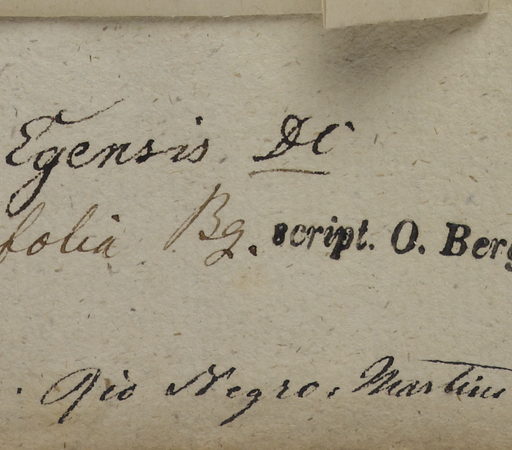 Egensis DC
folia Bg. script. O. Berg
. Rio Negro. Martius